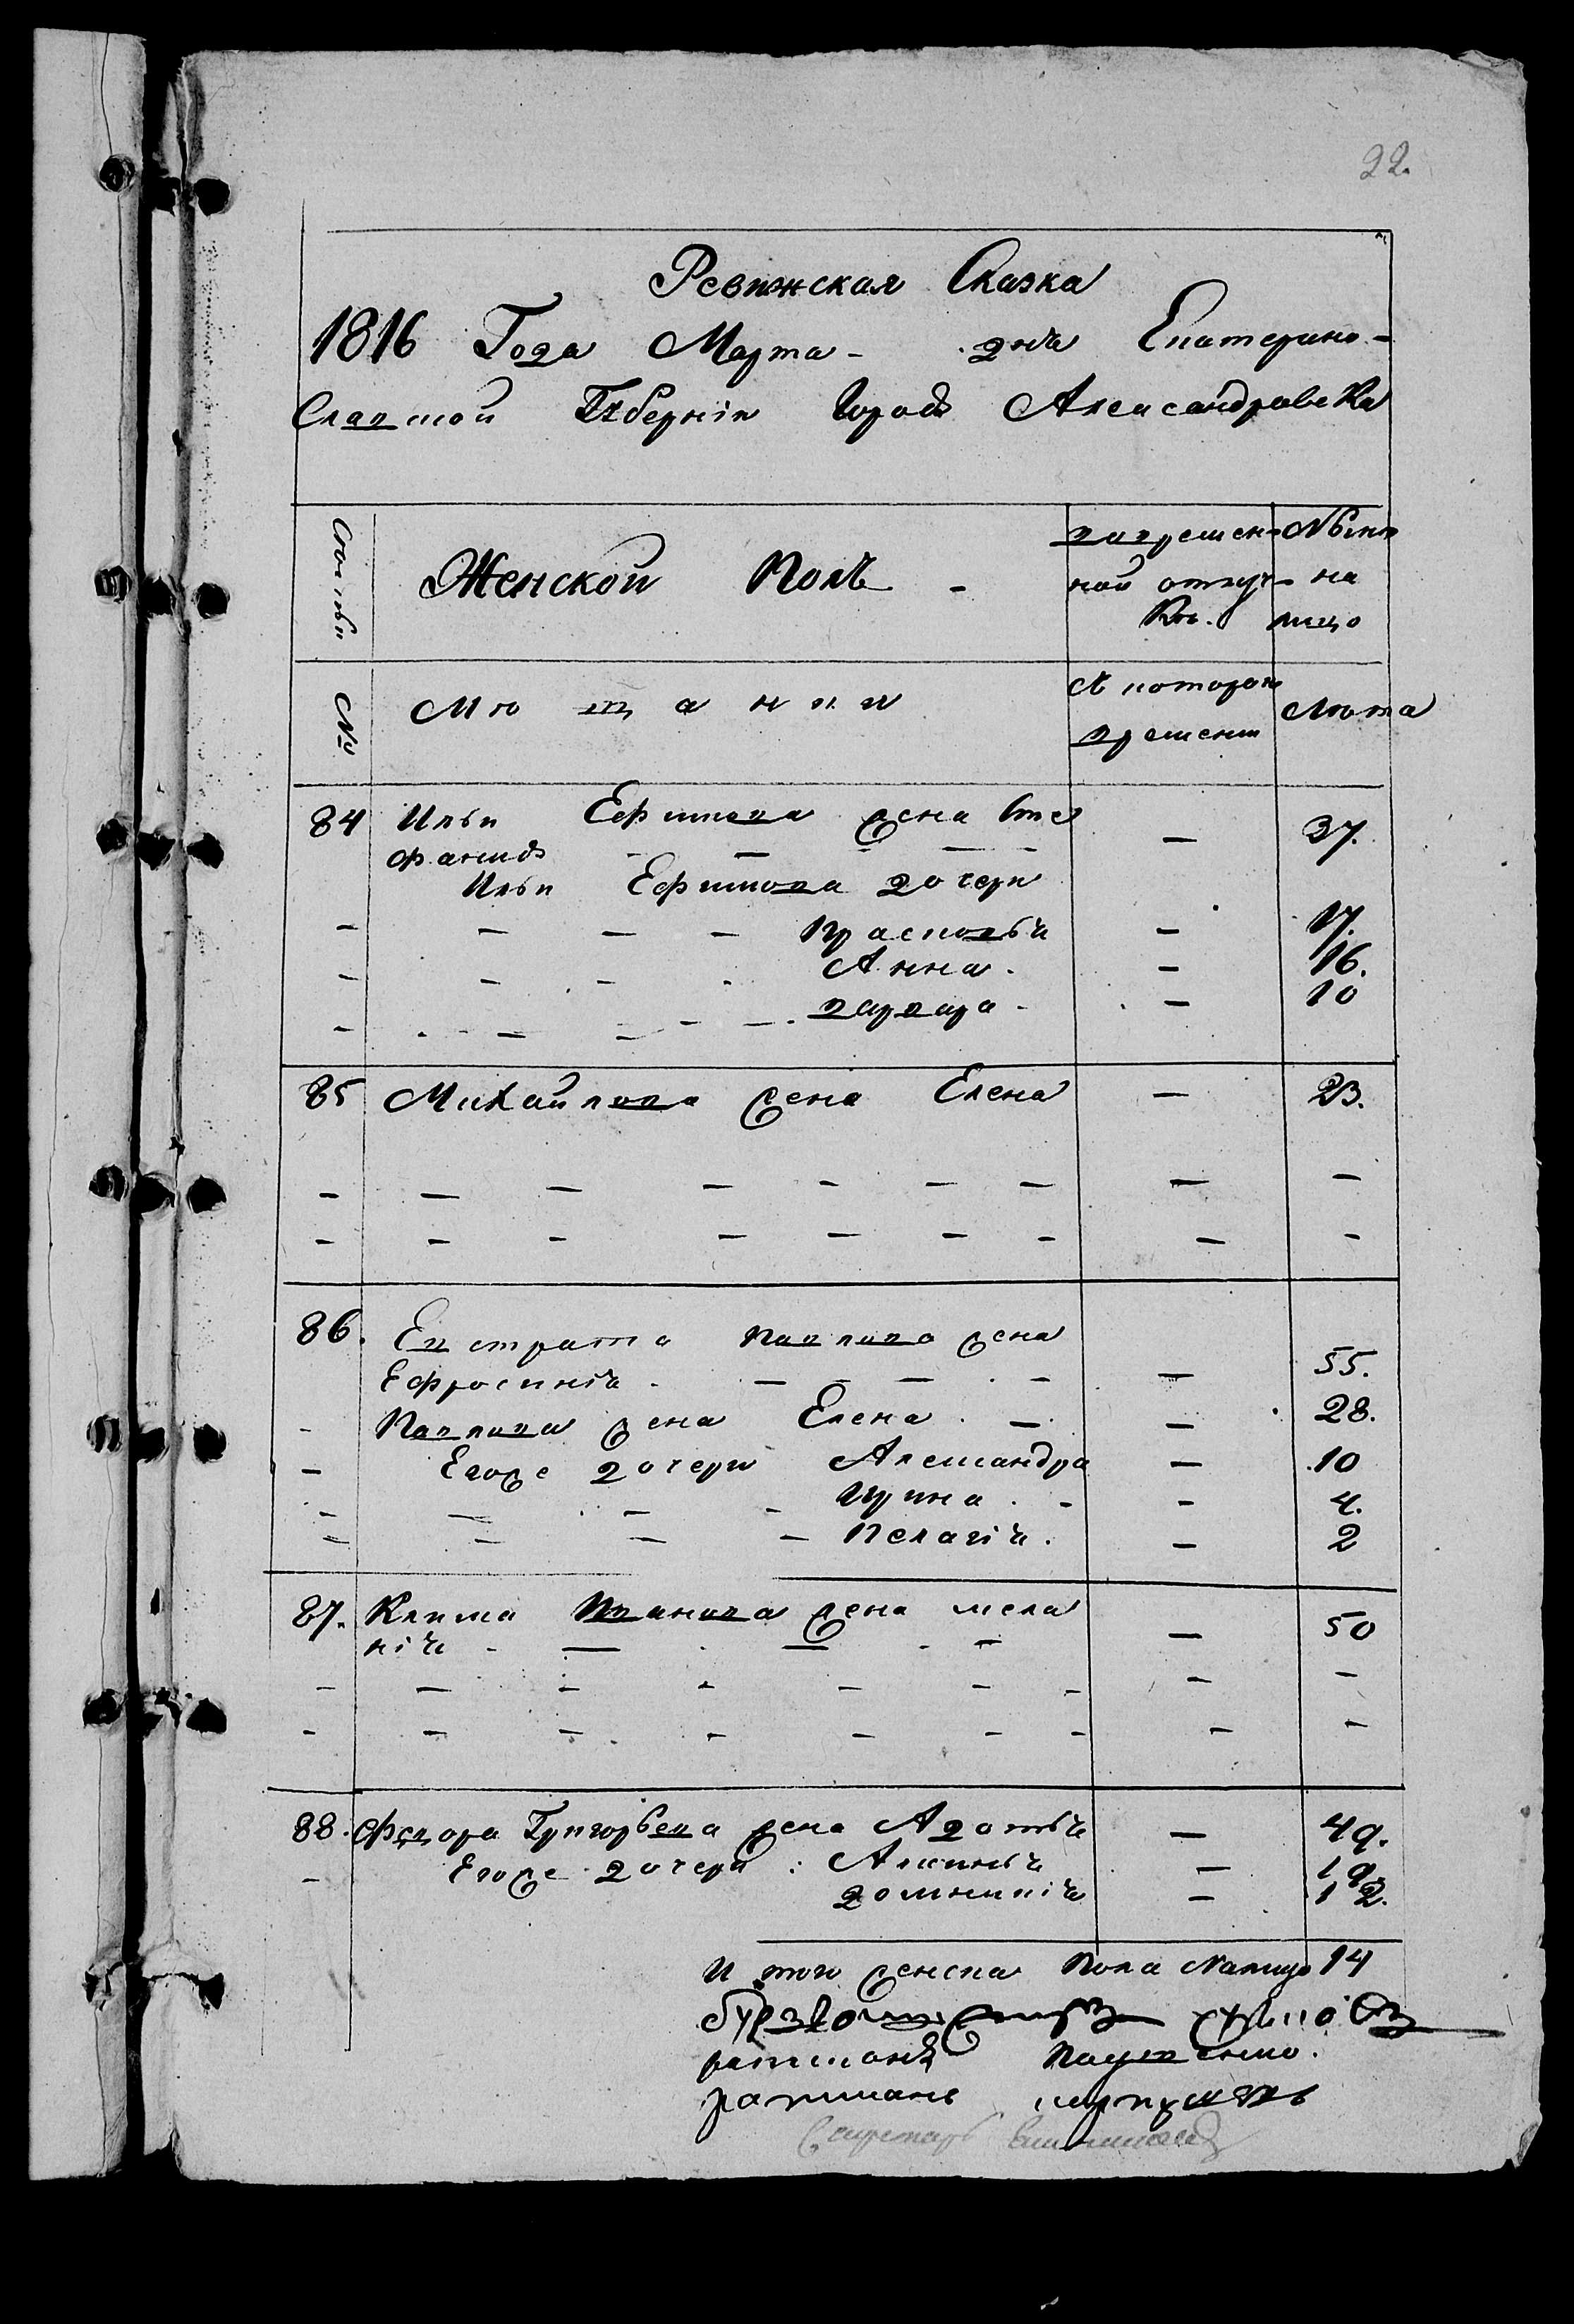 22.
Ревижская Сказка
1816 Года Марта - дня Екатерино-
Славской Губернїи Города Александровска
Семьи
Женской Полъ -
во времен-
ной отлуч-
кѣ.
Нынѣ
на
лицо
№
Мѣщанки
С котораго
времени
Лѣта
84 Ильи Ефимова жена Сте - 37.
фанида
Ильи Ефимова дочери
- - - - Прасковья - 17.
- - - - Анна. - 16.
- - - - варвара - - 10
85 Михайлова жена Елена - 23.
- - - - - - - - -
- - - - - - - - -
86. Евстрата Павлова жена
Ефросинїя. - - - - - 55.
- Павлова жена Елена. - - 28.
- Егоже дочери Александра - 10
- - - - Ирина. - - 4.
- - - - Пелагїя. - 2
87. Клима Иванова жена мела
нїя - - - - - - 50
- - - - - - - - -
- - - - - - - - -
88. Федора Григорьева жена Адотья - 49.
- Егоже дочери: Аксинья - 19.
домникїя - 12.
И того женска Пола Налицо 14
ратманъ
ратманъ
Секретарь